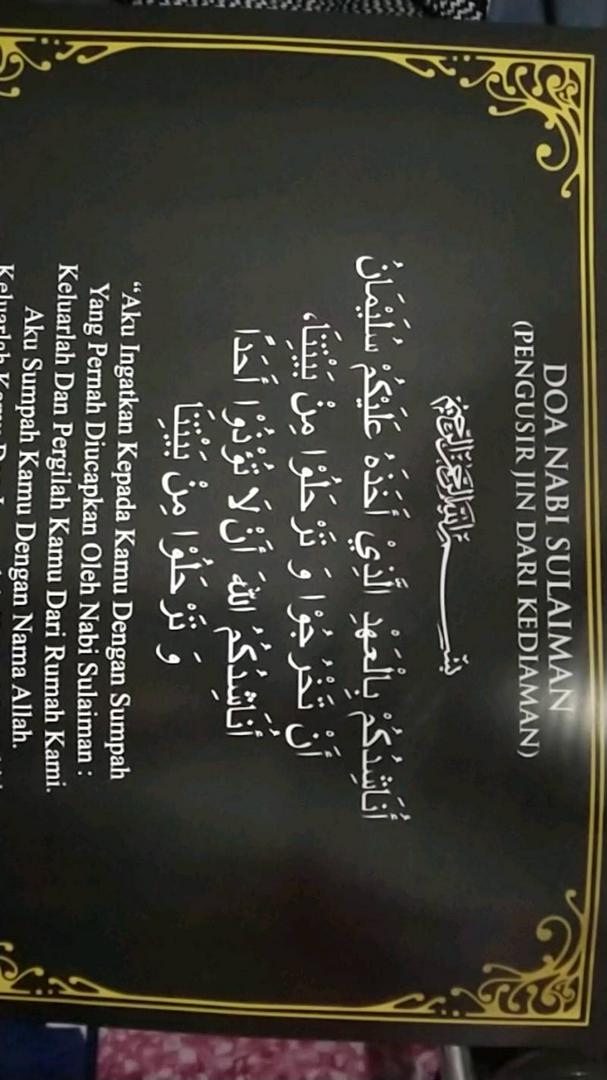 DOA NABI SULAIMAN
(PENGUSIR JIN DARI KEDIAMAN)
بِسْمِ اللهِ الرَّحْمٰنِ الرَّحِيْمِ
أُنَاشِدُكُمْ بِالْعَهْدِ الَّذِيْ أَخَذَهُ عَلَيْكُمْ سُلَيْمَانُ
أَنْ تَخْرُجُوْا وَ تَرْحَلُوْا مِنْ بَيْتِنَا،
أُنَاشِدُكُمُ اللهَ أَنْ لَا تُؤْذُوْا أَحَدًا
وَ تَرْحَلُوْا مِنْ بَيْتِنَا
“Aku Ingatkan Kepada Kamu Dengan Sumpah
Yang Pernah Diucapkan Oleh Nabi Sulaiman :
Keluarlah Dan Pergilah Kamu Dari Rumah Kami.
Aku Sumpah Kamu Dengan Nama Allah.
Keluarlah Kamu